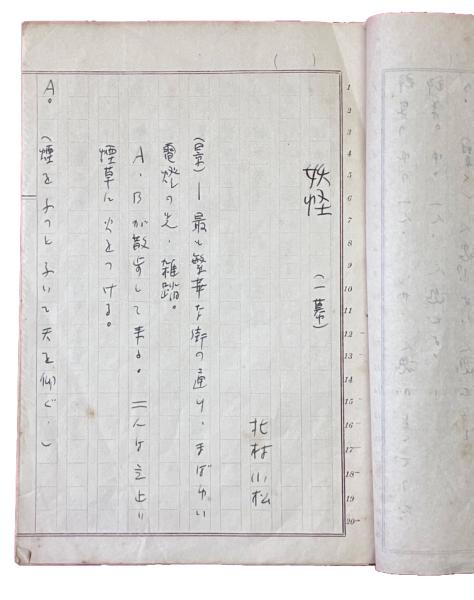 妖怪
(一幕)
北村小松
(景)―最も繁華な街の通り、まばゆい
電燈の光、雑踏。
A・Bが散歩して来る。二人は立止り
煙草に火をつける。
A。(煙をふつとふいて天を仰ぐ.)
1
2
3
4
5
6
7
8
9
10
11
12
13
14
15
16
17
18
19
20